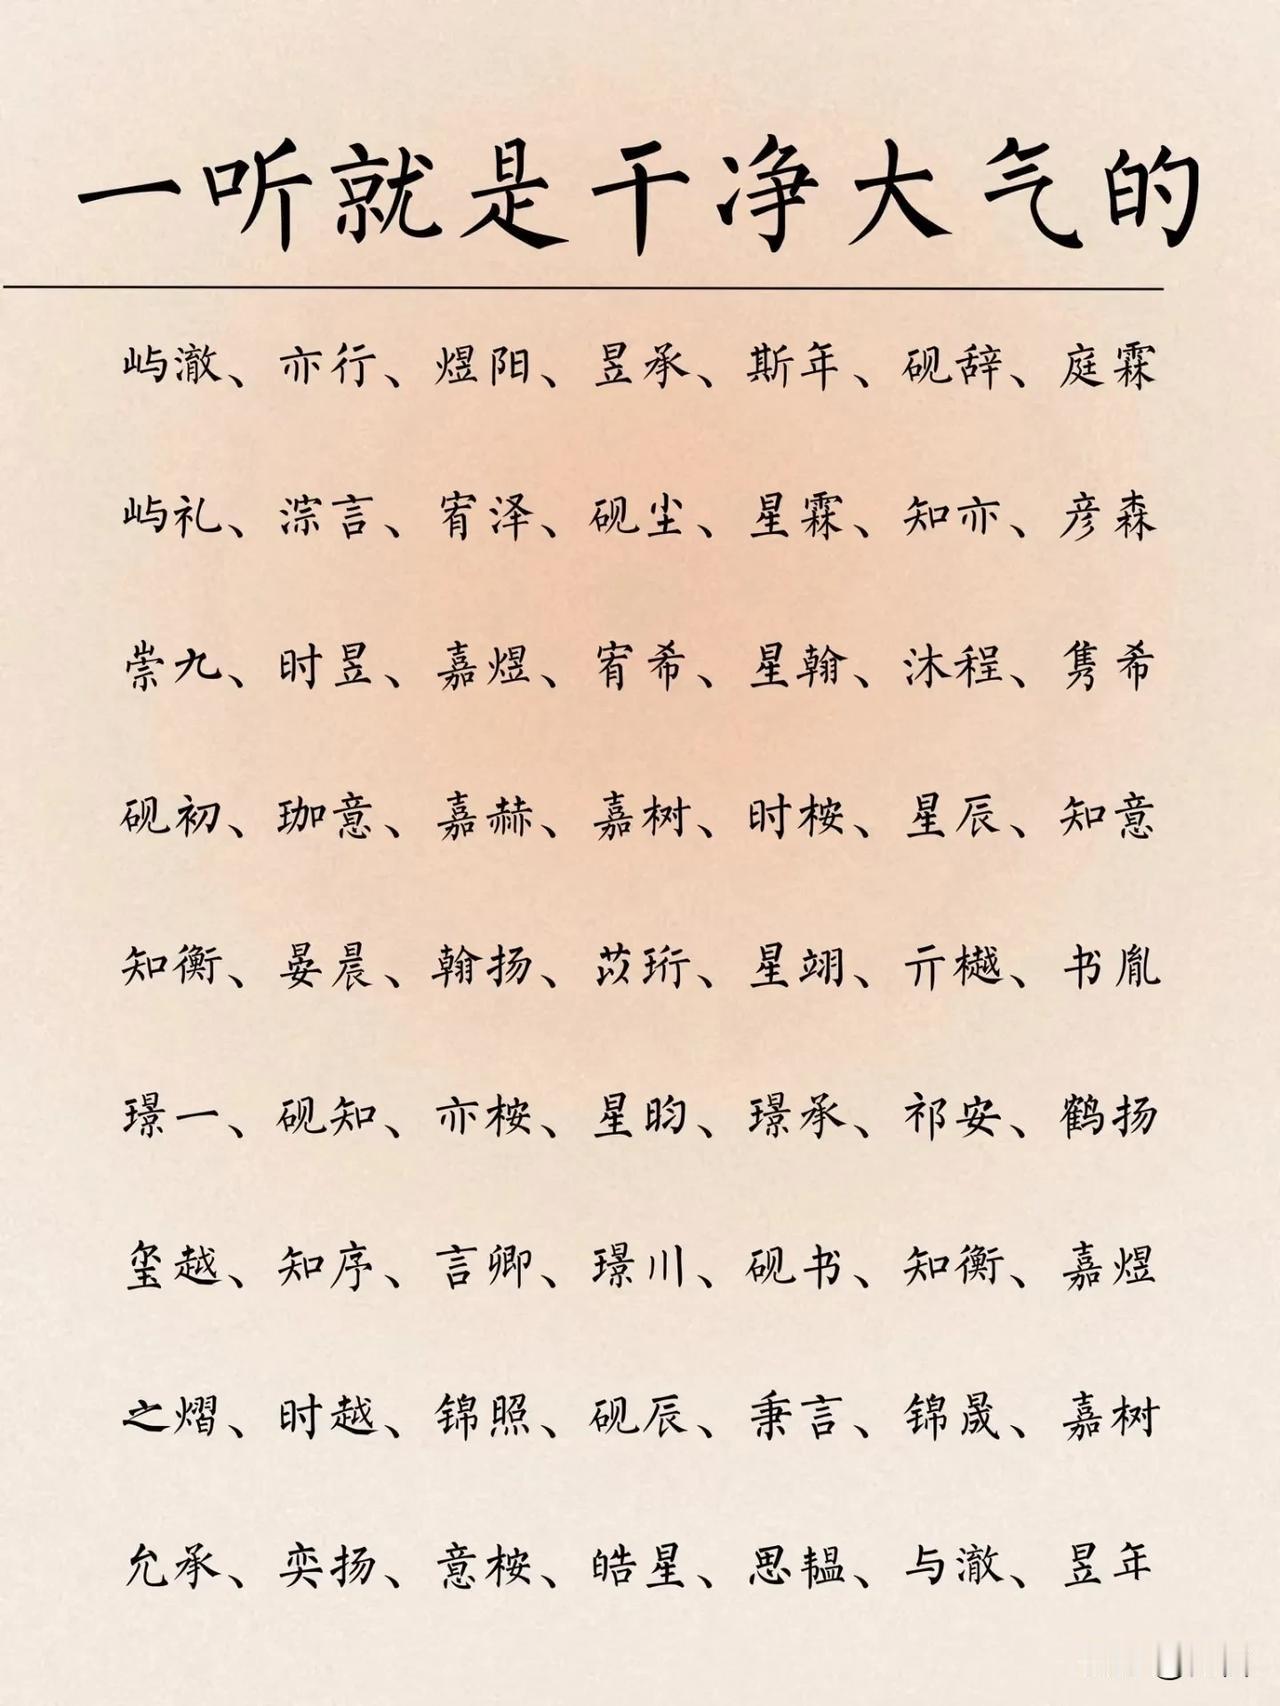 一听就是干净大气的
屿澈、亦行、煜阳、昱承、斯年、砚辞、庭霖
屿礼、淙言、宥泽、砚尘、星霖、知亦、彦森
崇九、时昱、嘉煜、宥希、星翰、沐程、隽希
砚初、珈意、嘉赫、嘉树、时桉、星辰、知意
知衡、晏晨、翰扬、苡珩、星翊、亓樾、书胤
璟一、砚知、亦桉、星昀、璟承、祁安、鹤扬
玺越、知序、言卿、璟川、砚书、知衡、嘉煜
之熠、时越、锦照、砚辰、秉言、锦晟、嘉树
允承、奕扬、意桉、皓星、思韫、与澈、昱年